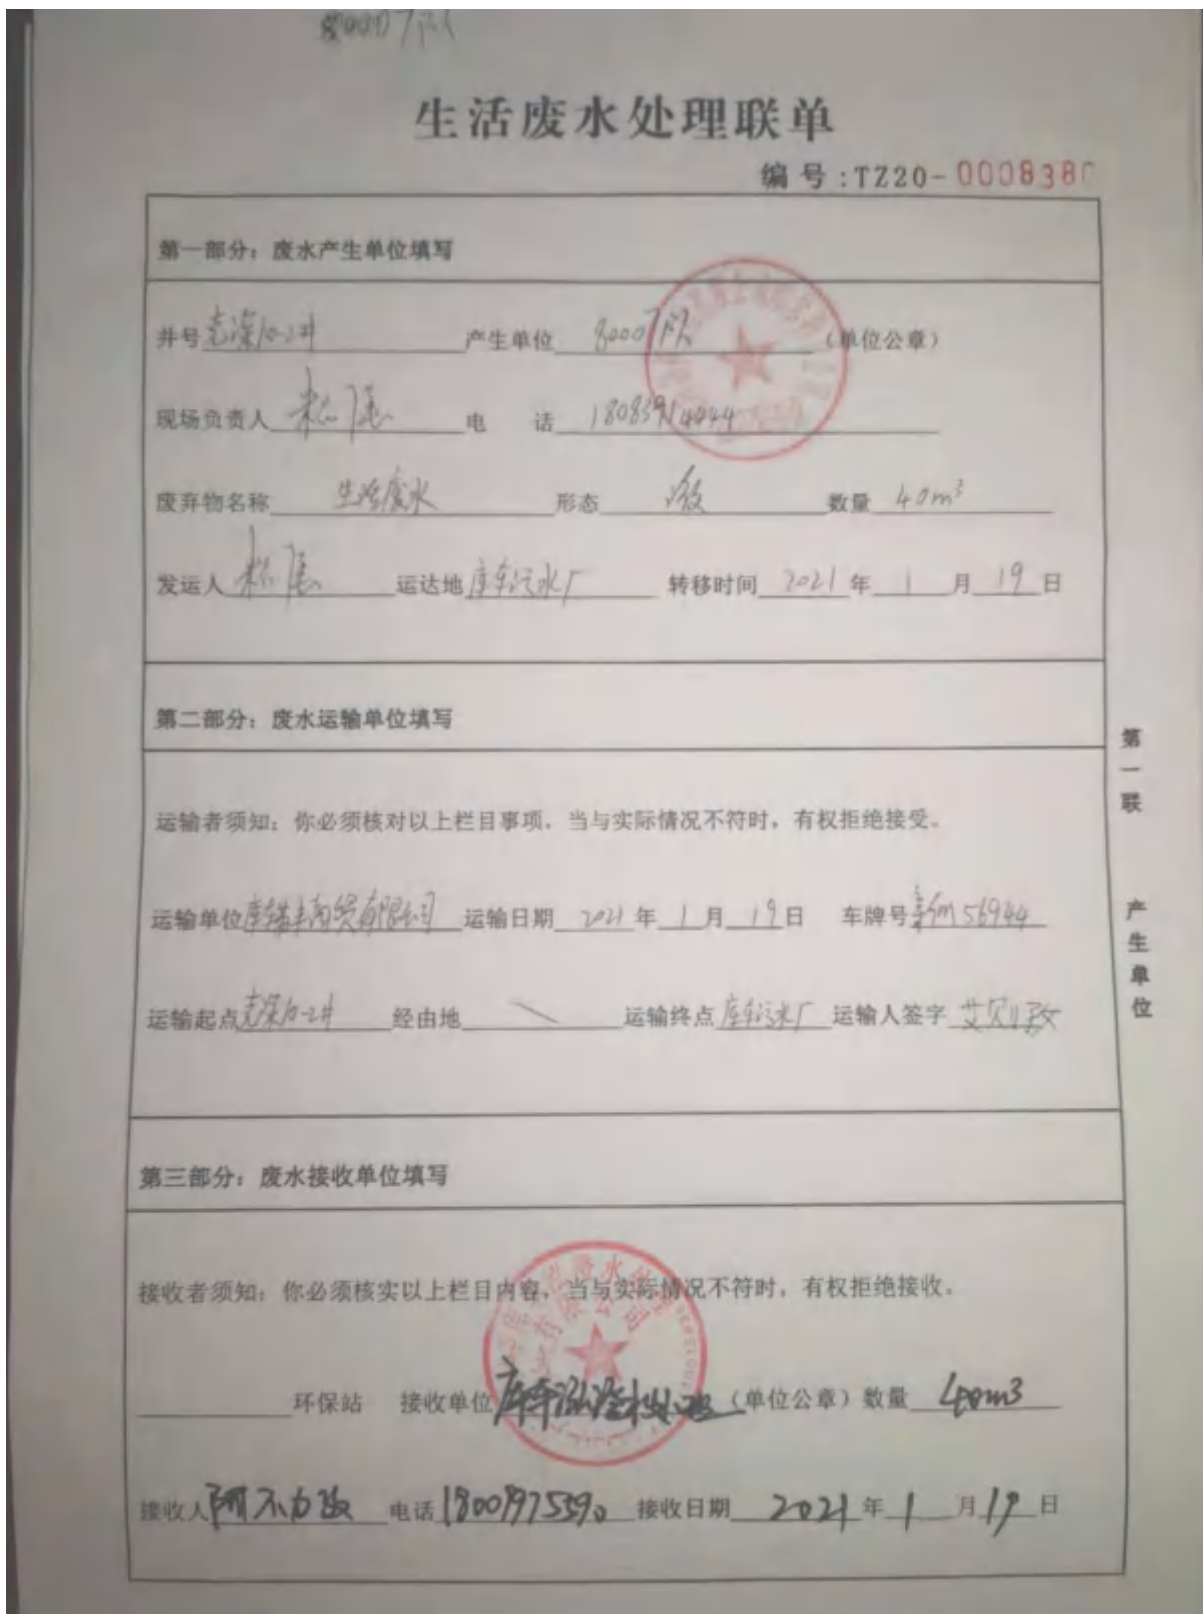 80007队
生活废水处理联单
编号:TZ20-000838
第一部分：废水产生单位填写
井号 克深10-2井 产生单位 80007队 （单位公章）
现场负责人 电 话 18083914444
废弃物名称 生活废水 形态 液 数量 40m³
发运人 运达地 库车污水厂 转移时间 2021 年 1 月 19 日
第二部分：废水运输单位填写
运输者须知：你必须核对以上栏目事项，当与实际情况不符时，有权拒绝接受。
运输单位 商贸有限公司 运输日期 2021 年 1 月 19 日 车牌号 56944
运输起点 克深10-2井 经由地 \ 运输终点 库车污水厂 运输人签字 艾则孜
第三部分：废水接收单位填写
接收者须知：你必须核实以上栏目内容，当与实际情况不符时，有权拒绝接收。
环保站 接收单位 库车 （单位公章）数量 40m³
接收人 阿不力孜 电话 18009975590 接收日期 2021 年 1 月 19 日
第一联 产生单位